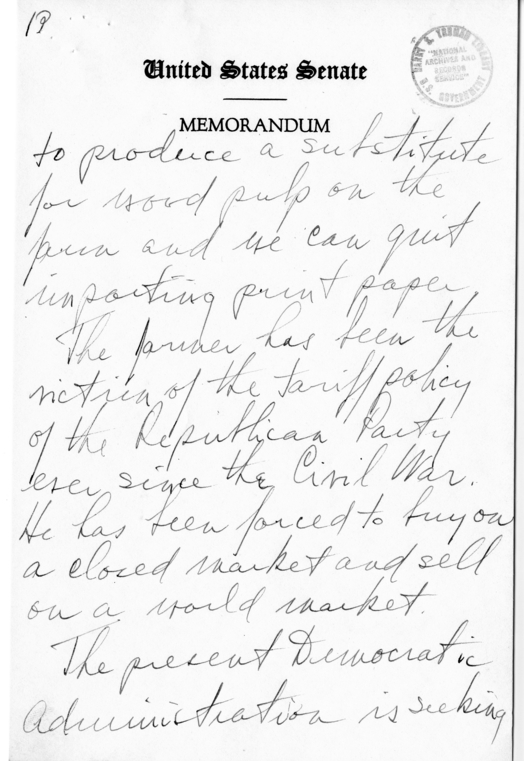 19.
United States Senate
MEMORANDUM
HARRY S. TRUMAN LIBRARY
"NATIONAL
ARCHIVES AND
RECORDS
SERVICE"
U.S. GOVERNMENT
to produce a substitute
for wood pulp on the
farm and we can quit
importing print paper.
The farmer has been the
victim of the tariff policy
of the Republican Party
ever since the Civil War.
He has been forced to buy on
a closed market and sell
on a world market.
The present Democratic
Administration is seeking